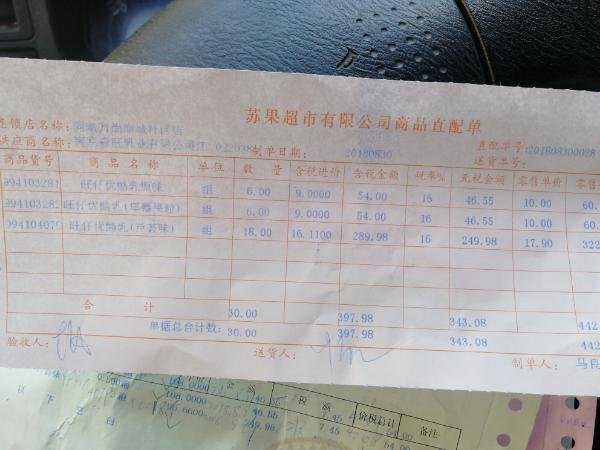 苏果超市有限公司商品直配单
连锁店名称:
供应商名称: 022038 制单日期: 20180830 直配单号:201808300028
送货单号:
商品货号 商品名称 单位 数量 含税进价 含税金额 税率% 无税金额 零售单价 零售金
0941032 旺仔优酪乳原味 组 6.00 9.0000 54.00 16 46.55 10.00 60.
0941032 旺仔优酪乳( 组 6.00 9.0000 54.00 16 46.55 10.00 60.
09410407 旺仔优酪乳(芦荟味) 组 18.00 16.1100 289.98 16 249.98 17.90 322
合计 30.00 397.98 343.08 442
单据总合计数: 30.00 397.98 343.08 442
验收人: 送货人: 制单人: 马良
金额 税额 价税总计 备注
108.0000 46.55 7.45 54.00
249.98
以下空白